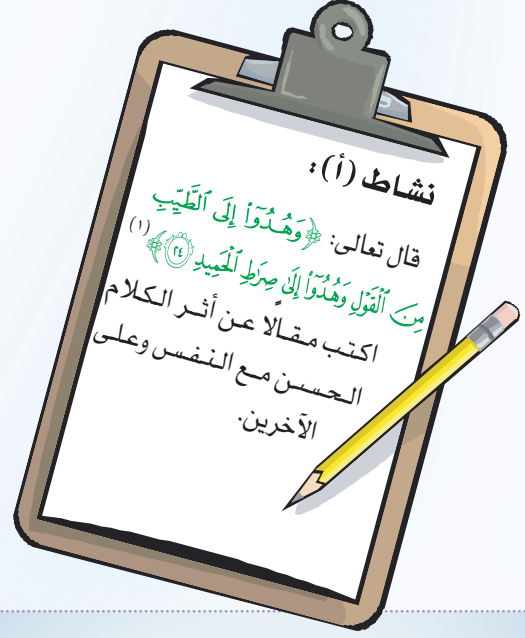 نشاط (أ):
قال تعالى: ﴿وَهُدُوٓاْ إِلَى ٱلطَّيِّبِ
مِنَ ٱلْقَوْلِ وَهُدُوٓاْ إِلَىٰ صِرَٰطِ ٱلْحَمِيدِ ٢٤﴾(١)
اكتب مقالًا عن أثر الكلام
الحسن مع النفس وعلى
الآخرين.